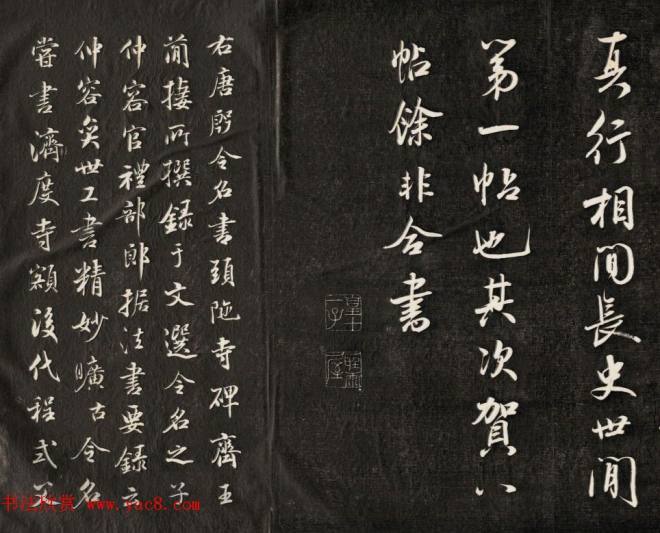 真行相間長史世間
第一帖也其次賀八
帖餘非合書
右唐殷令名書頭陁寺碑齊王
簡棲所撰録于文選令名之子
仲容官禮部郎据法書要録云
仲容奕世工書精妙曠古令名
嘗書濟度寺額後代程式
书法欣赏 www.yac8.com